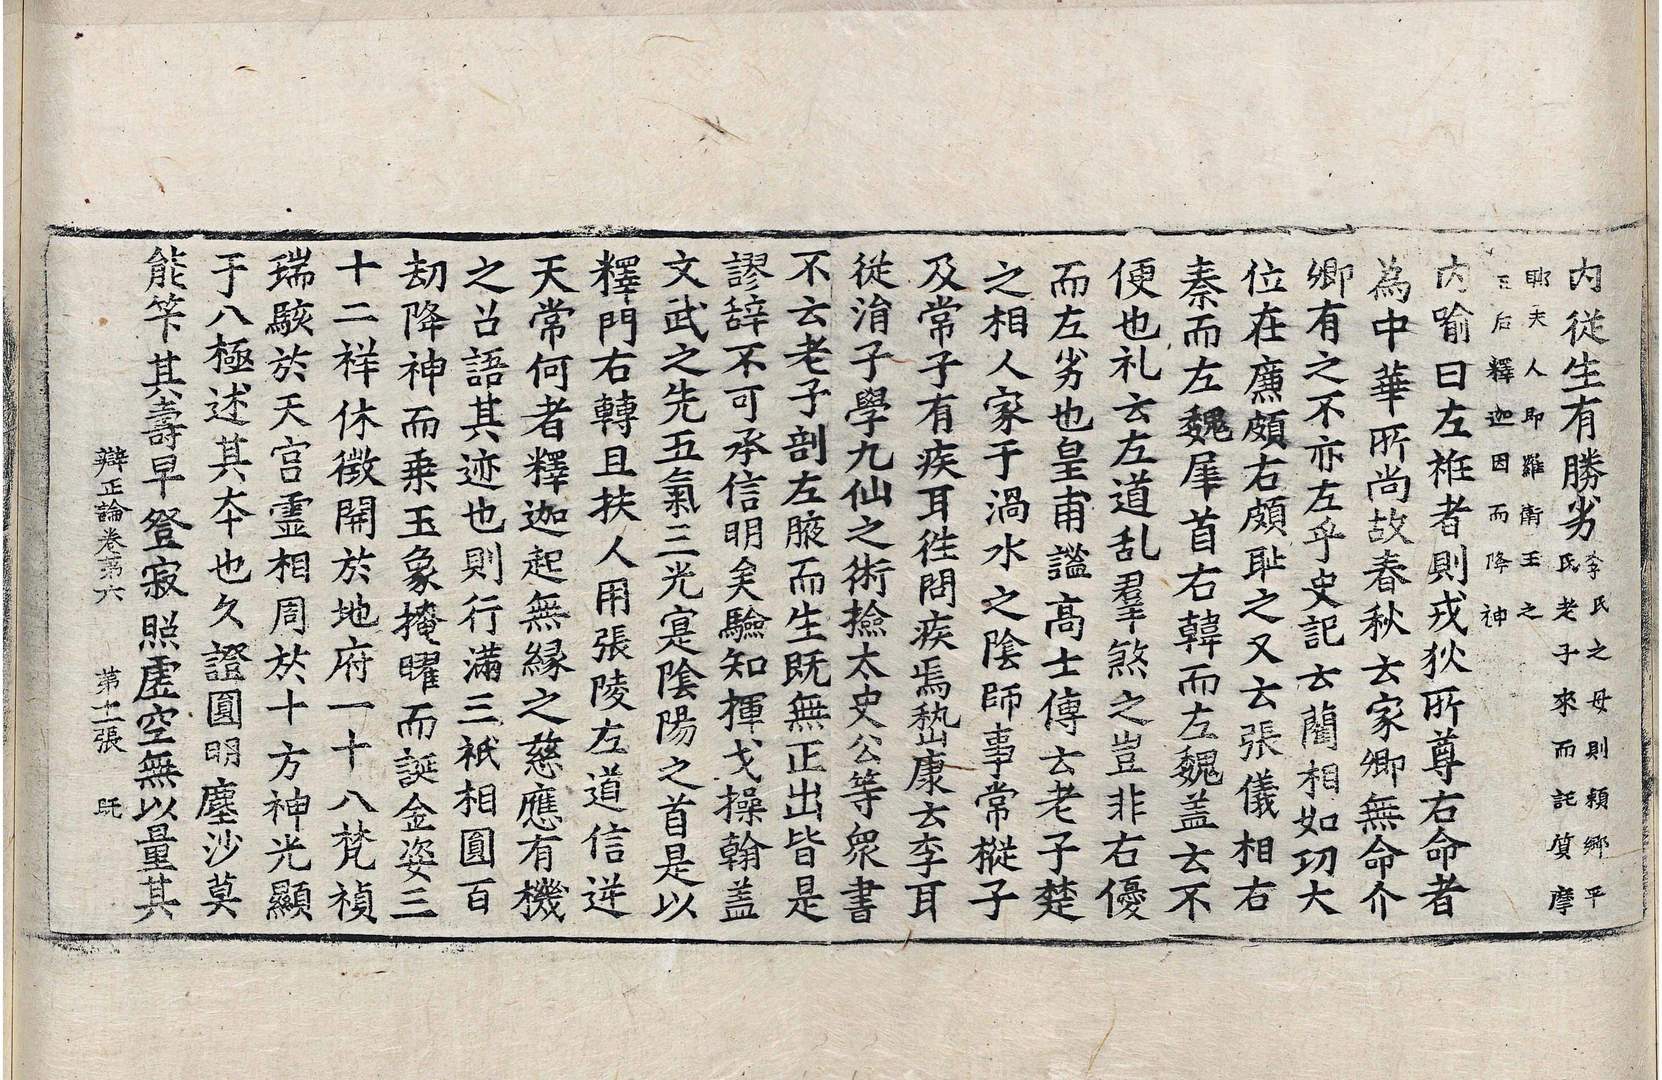 内從生有勝劣李氏之母則賴鄉平
氏老子來而託質摩
耶夫人即羅衛王之
正后釋迦因而降神
内喻曰左衽者則戎狄所尊右命者
為中華所尚故春秋云家卿無命介
卿有之不亦左乎史記云藺相如功大
位在廉頗右頗恥之又云張儀相右
秦而左魏犀首右韓而左魏盖云不
便也礼云左道乱羣煞之豈非右優
而左劣也皇甫謐高士傳云老子楚
之相人家于渦水之陰師事常樅子
及常子有疾耳徃問疾焉嵇康云李耳
從涓子學九仙之術撿太史公等眾書
不云老子剖左腋而生既無正出皆是
謬辞不可承信明矣驗知揮戈操翰盖
文武之先五氣三光寔陰陽之首是以
釋門右轉且扶人用張陵左道信逆
天常何者釋迦起無緣之慈應有機
之召語其迹也則行滿三祇相圓百
劫降神而乗玉象掩曜而誕金姿三
十二祥休徵開於地府一十八梵禎
瑞駭於天宮靈相周於十方神光顯
于八極述其本也久證圓明塵沙莫
能筭其壽早登寂照虛空無以量其
辯正論卷第六 第十二張 旣